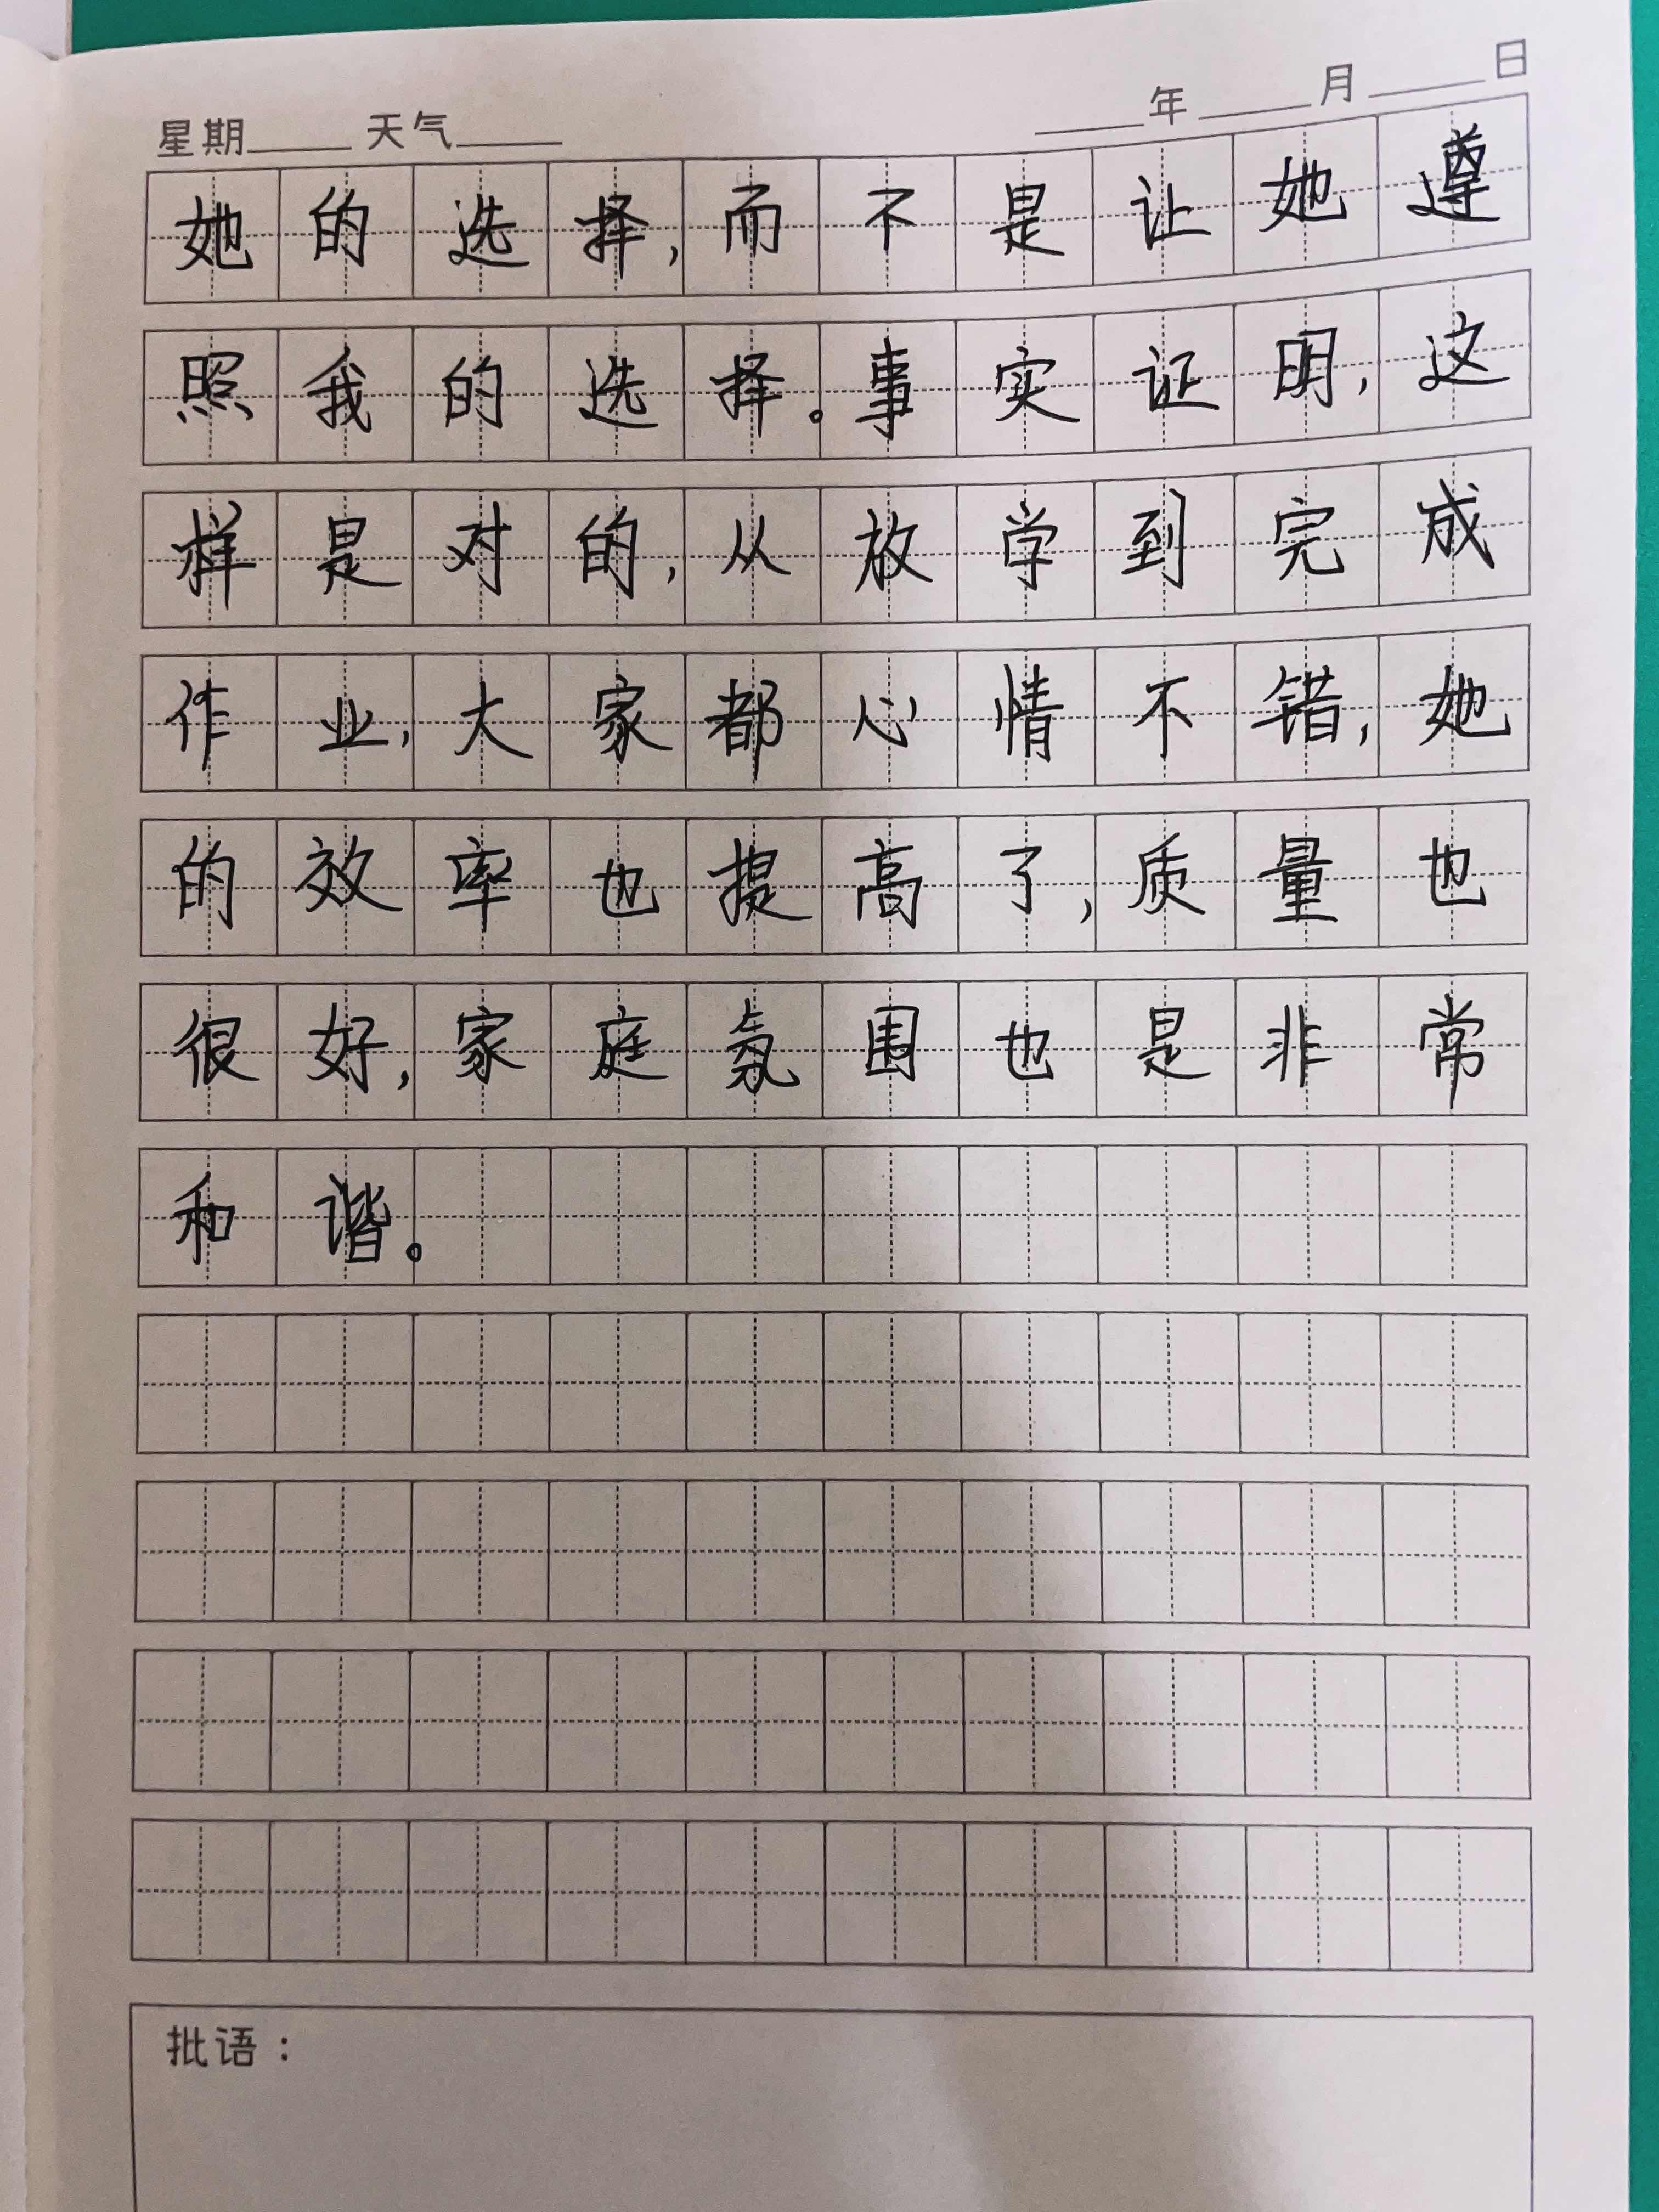 星期____ 天气____ ____年____月____日
她的选择,而不是让她遵
照我的选择。事实证明,这
样是对的,从放学到完成
作业,大家都心情不错,她
的效率也提高了,质量也
很好,家庭氛围也是非常
和谐。
批语: